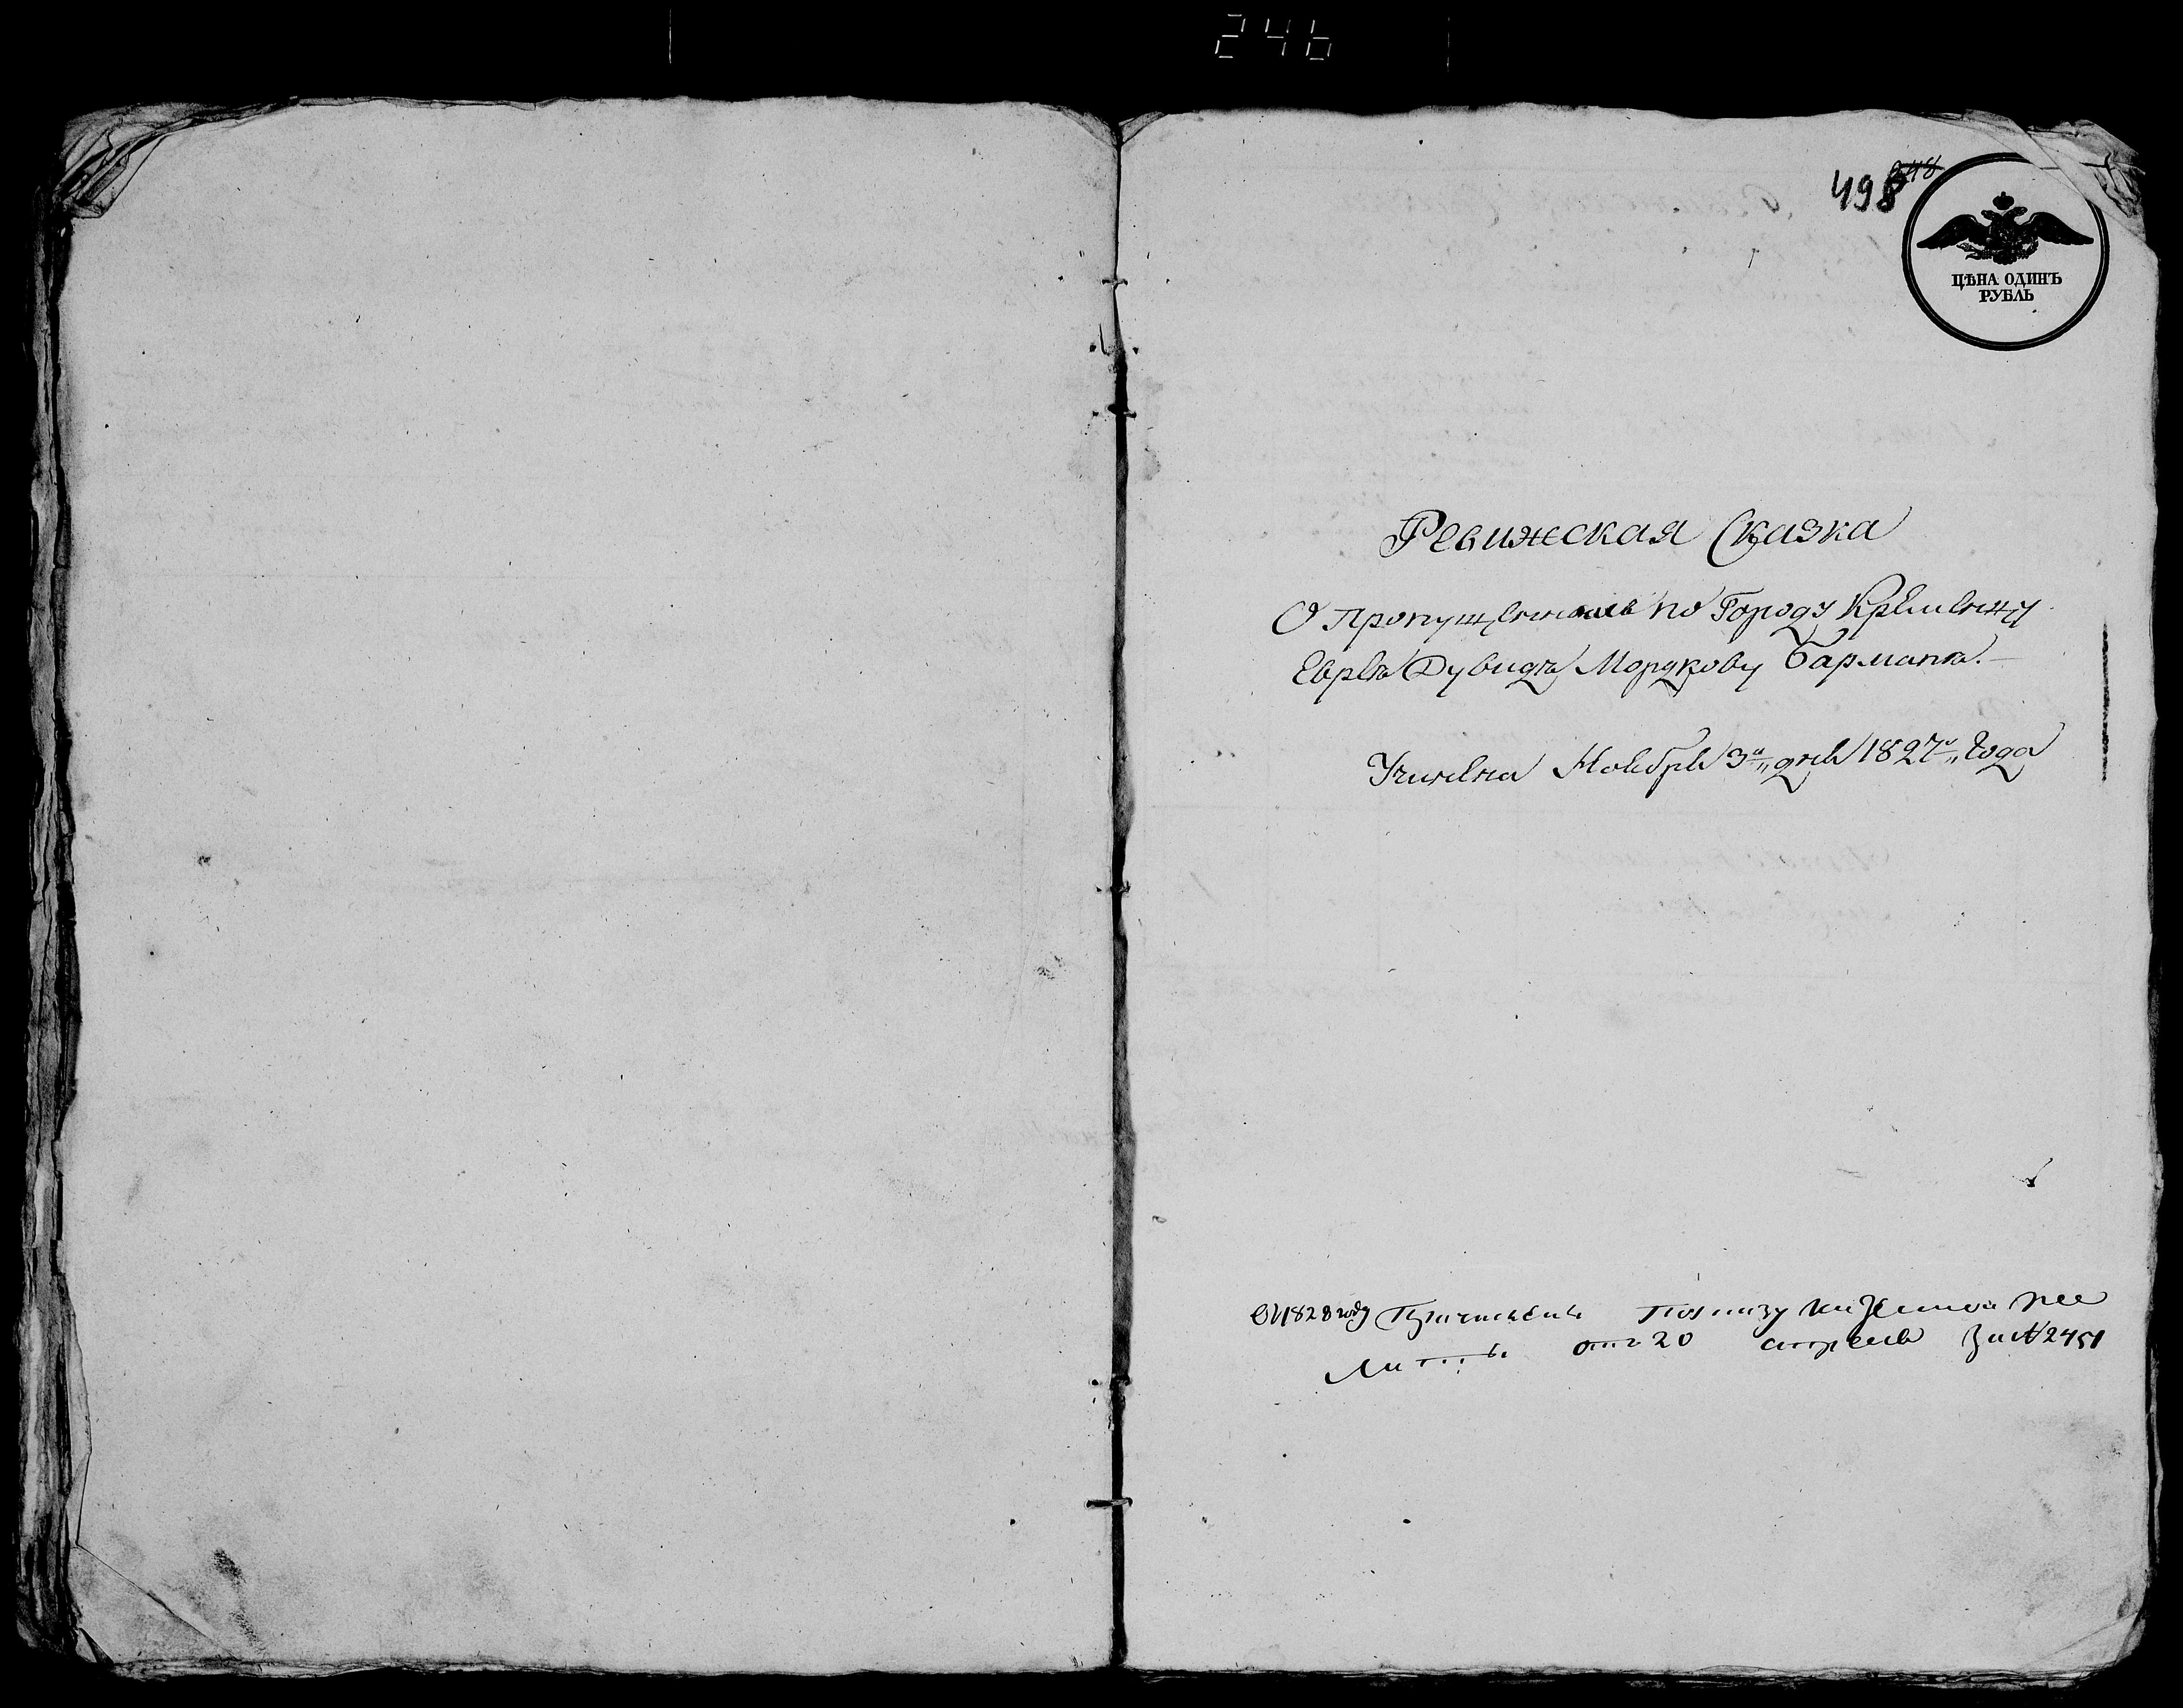 246
498
248
ЦѢНА ОДИНЪ
РУБЛЬ
Ревижская Сказка
О Пропущенномъ по Городу Кременцу
Еврѣѣ Дувидѣ Мордкову Барманѣ.
Учинена Ноября 3го дня 1827го года
въ 1828 году Причисленъ по указу казенной
от 20 апреля За № 2451